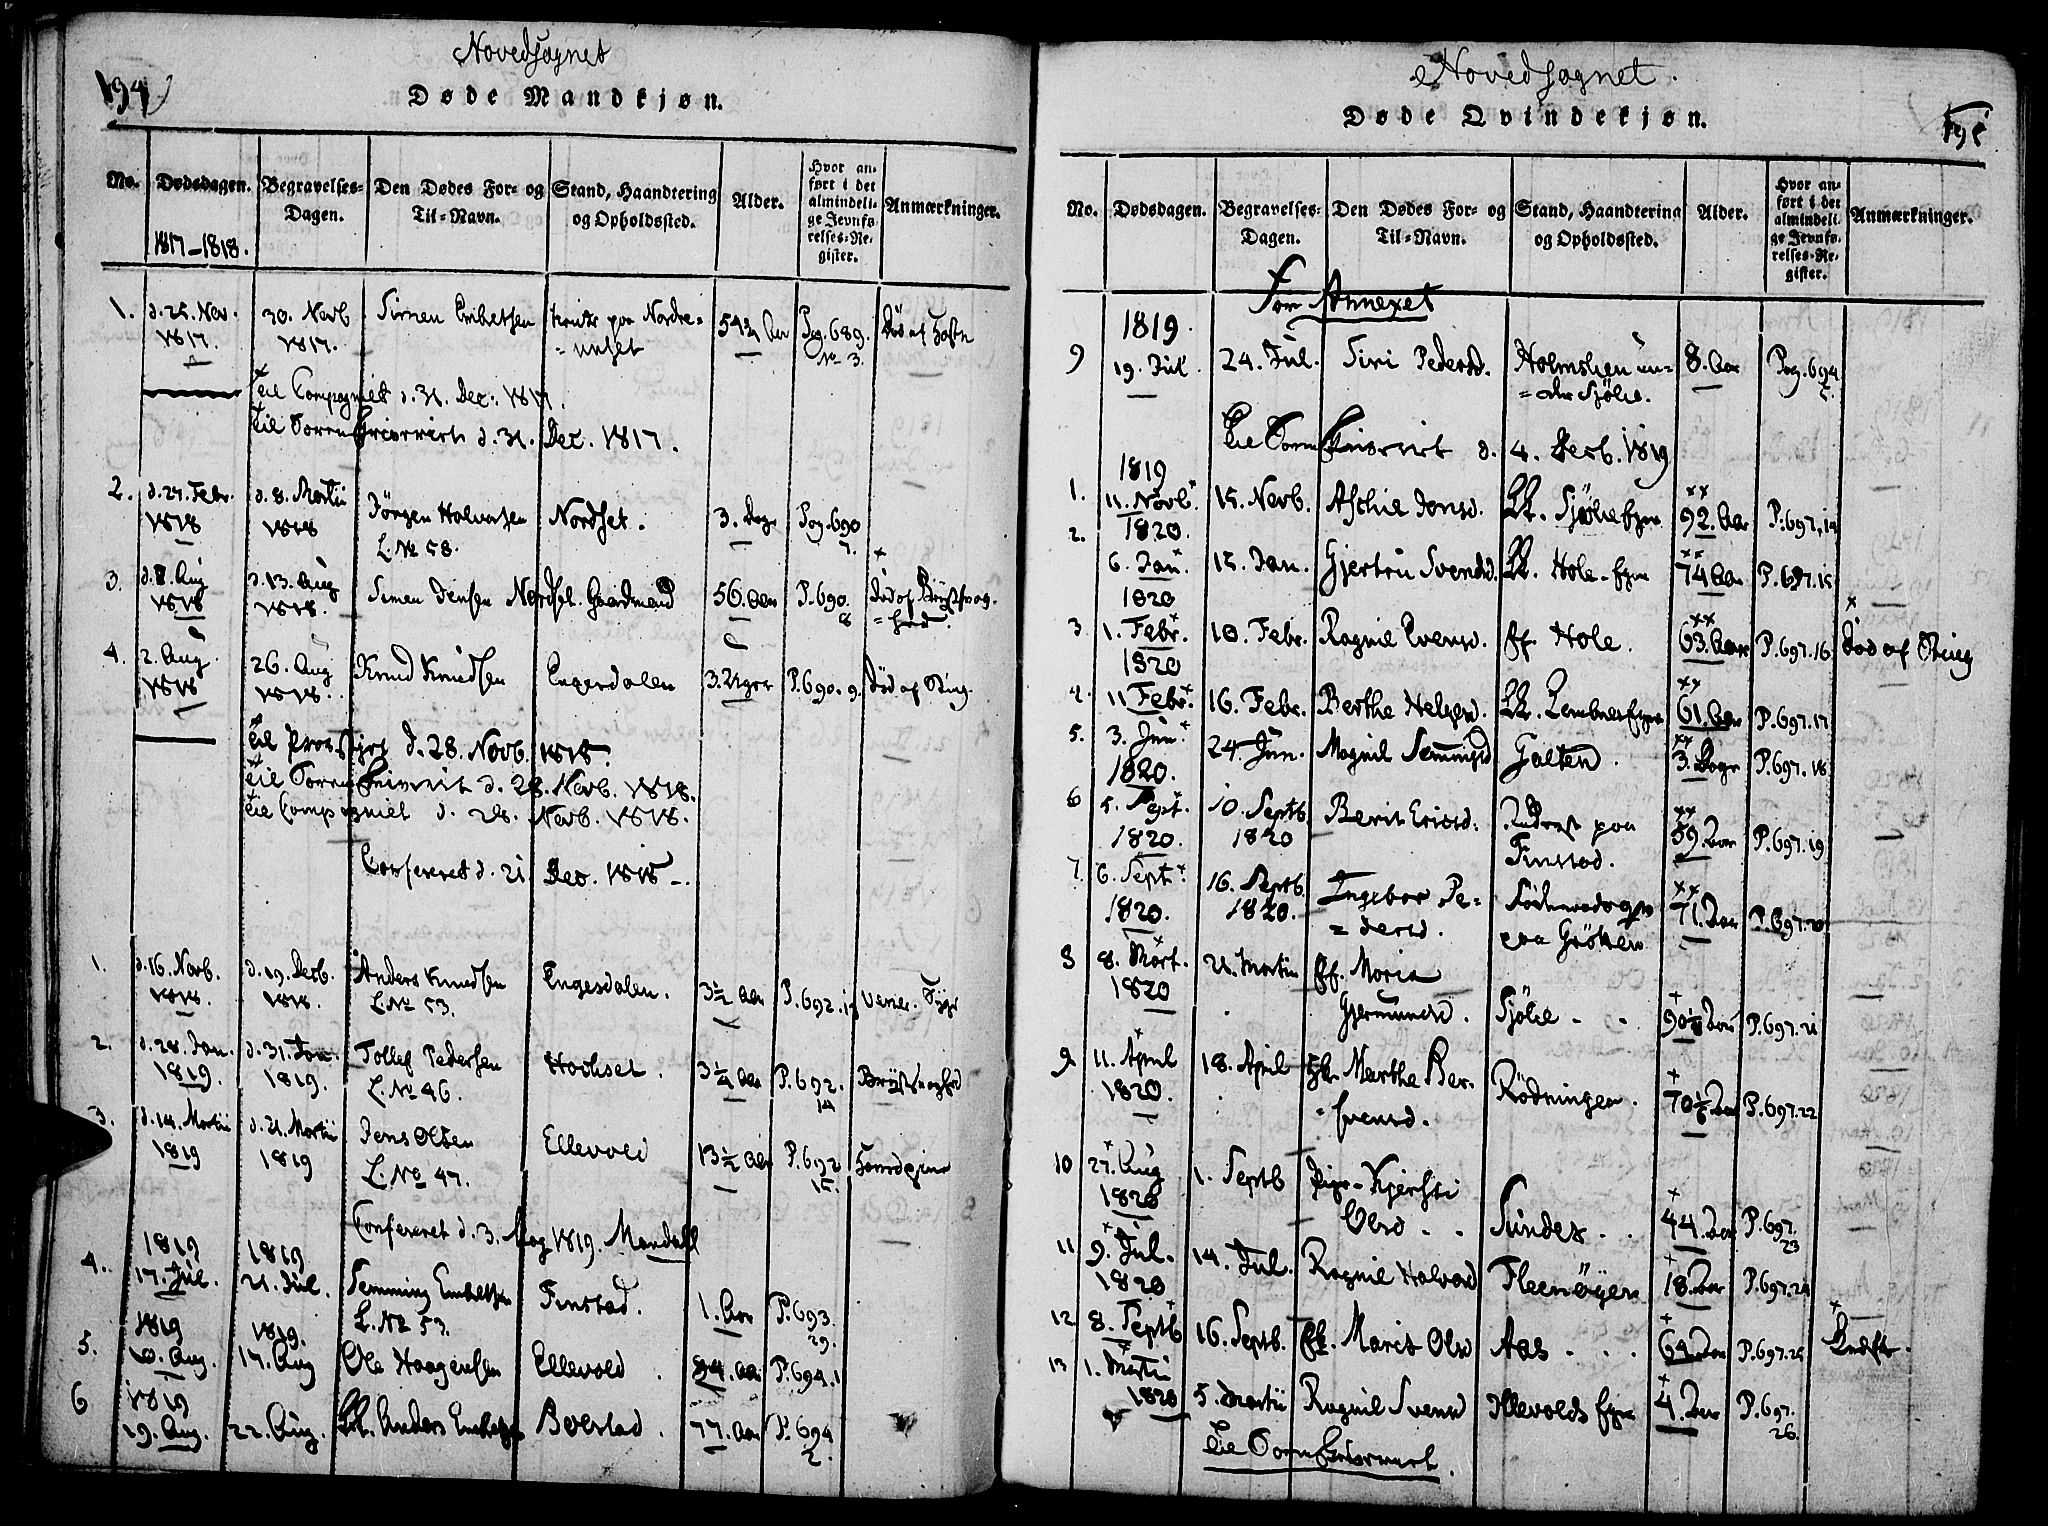 Hovedsognet
194
Døde Mandkjøn.
No.
Dødsdagen.
Begravelses-
Dagen.
Den Dødes For- og
Til-Navn.
Stand, Haandtering
og Opholdssted.
Alder.
Hvor an-
ført i det
almindeli-
ge Jevnfø-
relses-Re-
gister.
Anmærkninger.
1817-1818.
1. d. 25. Nov. 30. Novb Simen 54¾ Aar Pag. 689. Død af
1817. 1817. No 3.
d. 31. Dec. 1817.
d. 31. Dec. 1817.
2. d. 27. Febr. d. 8. Martii Jörgen Halvorsen Nordset. 3. Dage Pag. 690
1818 1818 L. No 58. 7.
3. d. 8. Aug d. 13. Aug Simen Jensen Nordset. Gaardmand 56. Aar P. 690. Död af Brÿstsvag-
1818 1818. 8 =hed.
4. 2. Aug. 26. Aug Knud Knudsen Engerdalen 3. Uger P. 690. 9. Död af
1818 1818.
d. 28. Novb. 1818.
d. 28. Novb. 1818.
til Compagniet d. 28. Novb. 1818.
Confereret d. 21 Dec. 1818.
1. d. 16. Novb. d. 19. Decb. Anders Knudsen Engerdalen. 3½ Aar P. 692. 13
1818. 1818. L. No 53.
2. d. 28. Jan. d. 31. Jan. Tollef Pedersen 3¼ Aar P. 692.
1819. 1819. L. No 46. 14
3. d. 14. Martii d. 21. Martii Jens Olsen Ellevold 13½ Aar P. 692
1819 1819 L. No 47. 15.
Confereret d. 3. May 1819. Mandahl
1819 1819
4. 17. Jul. 21. Jul. Semming Finstad. 1. Aar P. 693
L. No 53. 29.
1819 1819.
5. 10. Aug. 17. Aug Ole Haagensen Ellevold 84. Aar P. 694. 1
1819
6 19. Aug. 22. Aug. Anders Bolstad. 77. Aar P. 694
2.
Hovedsognet.
195
Døde Qvindekjøn.
No.
Dødsdagen.
Begravelses-
Dagen.
Den Dødes For- og
Til-Navn.
Stand, Haandtering
og Opholdssted.
Alder.
Hvor an-
ført i det
almindeli-
ge Jevnfø-
relses-Re-
gister.
Anmærkninger.
For Annexet
1819.
9 19. Jul 24. Jul. Siri Pedersd. un- 8. Aar Pag. 694
=der Sjölie.
d. 4. Decb. 1819
1819
1. 11. Novb. 15. Novb. Jonsd. Sjölie 92. Aar P. 697. 14
2. 1820.
6. Jan. 15. Jan. Gjertru Svendsd. Hole 74 Aar P. 697. 15
1820
3 1. Febr. 10. Febr. Ragnil Hole. 63. Aar P. 697. 16 Död af
1820
4. 11 Febr. 16. Febr. Berthe Helgesd. 61. Aar P. 697. 17
5. 3. Jun. 24. Jun. Magnil Semmingsd Galten. 3. Dage P. 697. 18
1820.
6 5. Sept. 10. Septb Berit Ericsd. paa 89. Aar P. 697. 19
1820. 1820 Finstad.
7. 6. Sept. 16. Septb. Ingebor Pe- 71. Aar P. 697. 20
1820. 1820. =dersd. paa Grötten
8 8. Mart. 21. Martii Maria
1820 Gjermundsd. Sjölie 90 Aar P. 697. 21
9. 11. April 18. April Marthe Ber- Rödningen. 70 Aar P. 697. 22
1820.
10 27. Aug 1. Septb Pige Kjersti
1820 Olsd Sundet 44. Aar P. 697.
23
11 9. Jul. 14. Jul. Ragnil Halvorsd Fleenöÿen 18. Aar P. 697. 24
1820
12 8. Septb 16. Septb. Marit Olsd Aas 64. Aar P. 697. 25
13 1. Martii
1820 5. Martii Ragnil Svensd 4. Aar P. 697.
26.